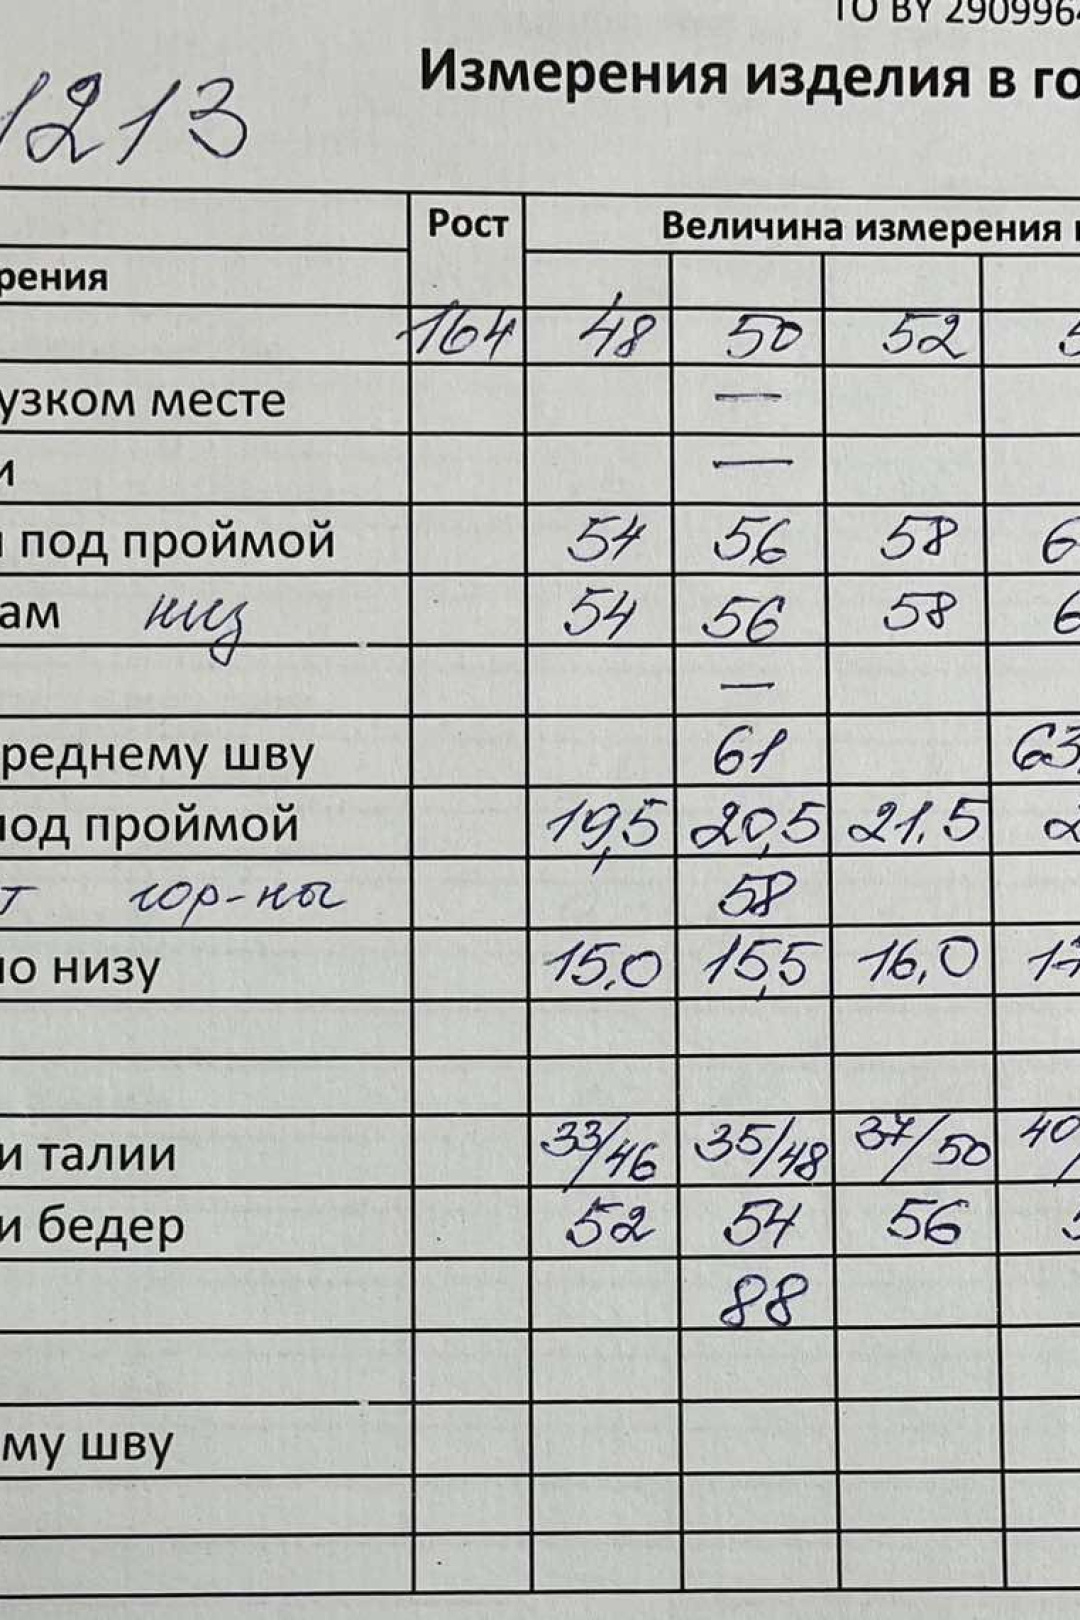 ТО BY 2909964
Измерения изделия в го
1213
Рост Величина измерения
рения
164 48 50 52 5
узком месте —
и —
под проймой 54 56 58 6
ам низ 54 56 58 6
—
реднему шву 61 63,
под проймой 19,5 20,5 21,5 2
т гор-ны 58
по низу 15,0 15,5 16,0 17
и талии 33/46 35/48 37/50 40/
и бедер 52 54 56 5
88
му шву